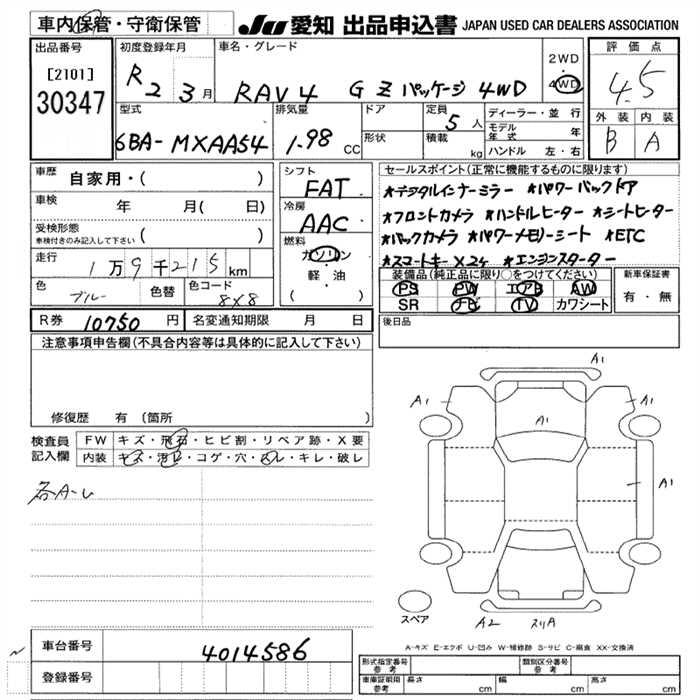 車内保管・守衛保管
JU 愛知 出品申込書 JAPAN USED CAR DEALERS ASSOCIATION
出品番号
[2101]
30347
初度登録年月
R 2 3 月
車名・グレード
RAV4 G Zパッケージ 4WD
2WD
4WD
評価点
4.5
外装 内装
B A
型式
6BA-MXAA54
排気量
1.98 CC
ドア
形状
定員
5 人
積載
kg
ディーラー・並行
モデル年式 年
ハンドル 左・右
車歴 自家用・( )
車検 年 月( 日)
受検形態
車検付きのみ記入して下さい ( )
走行 1万9千215km
色 ブルー 色替 色コード 8X8
シフト
FAT
冷房
AAC
燃料
ガソリン
軽・油
( )
セールスポイント(正常に機能するものに限ります)
★デジタルインナーミラー ★パワーバックドア
★フロントカメラ ★ハンドルヒーター ★シートヒーター
★バックカメラ ★パワーメモリーシート ★ETC
★スマートキーX2ヶ ★エンジンスターター
装備品(純正品に限り○をつけてください)
PS PW エアB AW
SR ナビ TV カワシート
新車保証書
有・無
R券 10750 円 名変通知期限 月 日
後日品
注意事項申告欄(不具合内容等は具体的に記入して下さい)
修復歴 有 (箇所
検査員記入欄
FW キズ・飛石・ヒビ割・リペア跡・X要
内装 キズ・汚レ・コゲ・穴・スレ・キレ・破レ
各A-L
A1
A1
A1
A1
A1
スペア
A2 スリA
A-キズ E-エクボ U-凹み W-補修跡 S-サビ C-腐食 XX-交換済
車台番号 4014586
登録番号
形式指定番号 参考 類別区分番号 参考
車庫証明用 参考 長さ cm 幅 cm 高さ cm